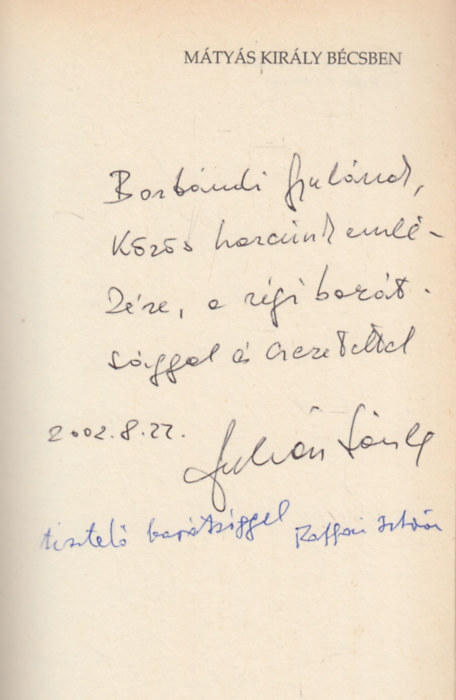 MÁTYÁS KIRÁLY BÉCSBEN
Borbándi Gyulának,
Közös harcaink emlé-
zére, a régi barát-
sággal és szeretettel
2002.8.22.
tisztelő barátsággel Raffai István